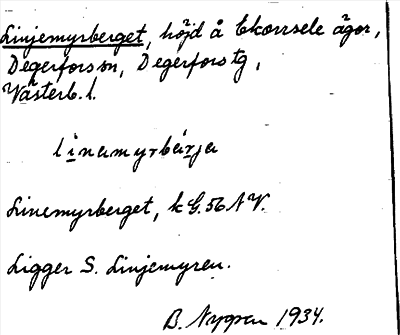 Linjemyrberget, höjd å Ekorrsele ägor,
Degerfors sn, Degerfors tg,
Västerb. l.
linamyrbärja
Linemyrberget, k G. 56 NV.
Ligger S. Linjemyren.
B. Nyman 1934.